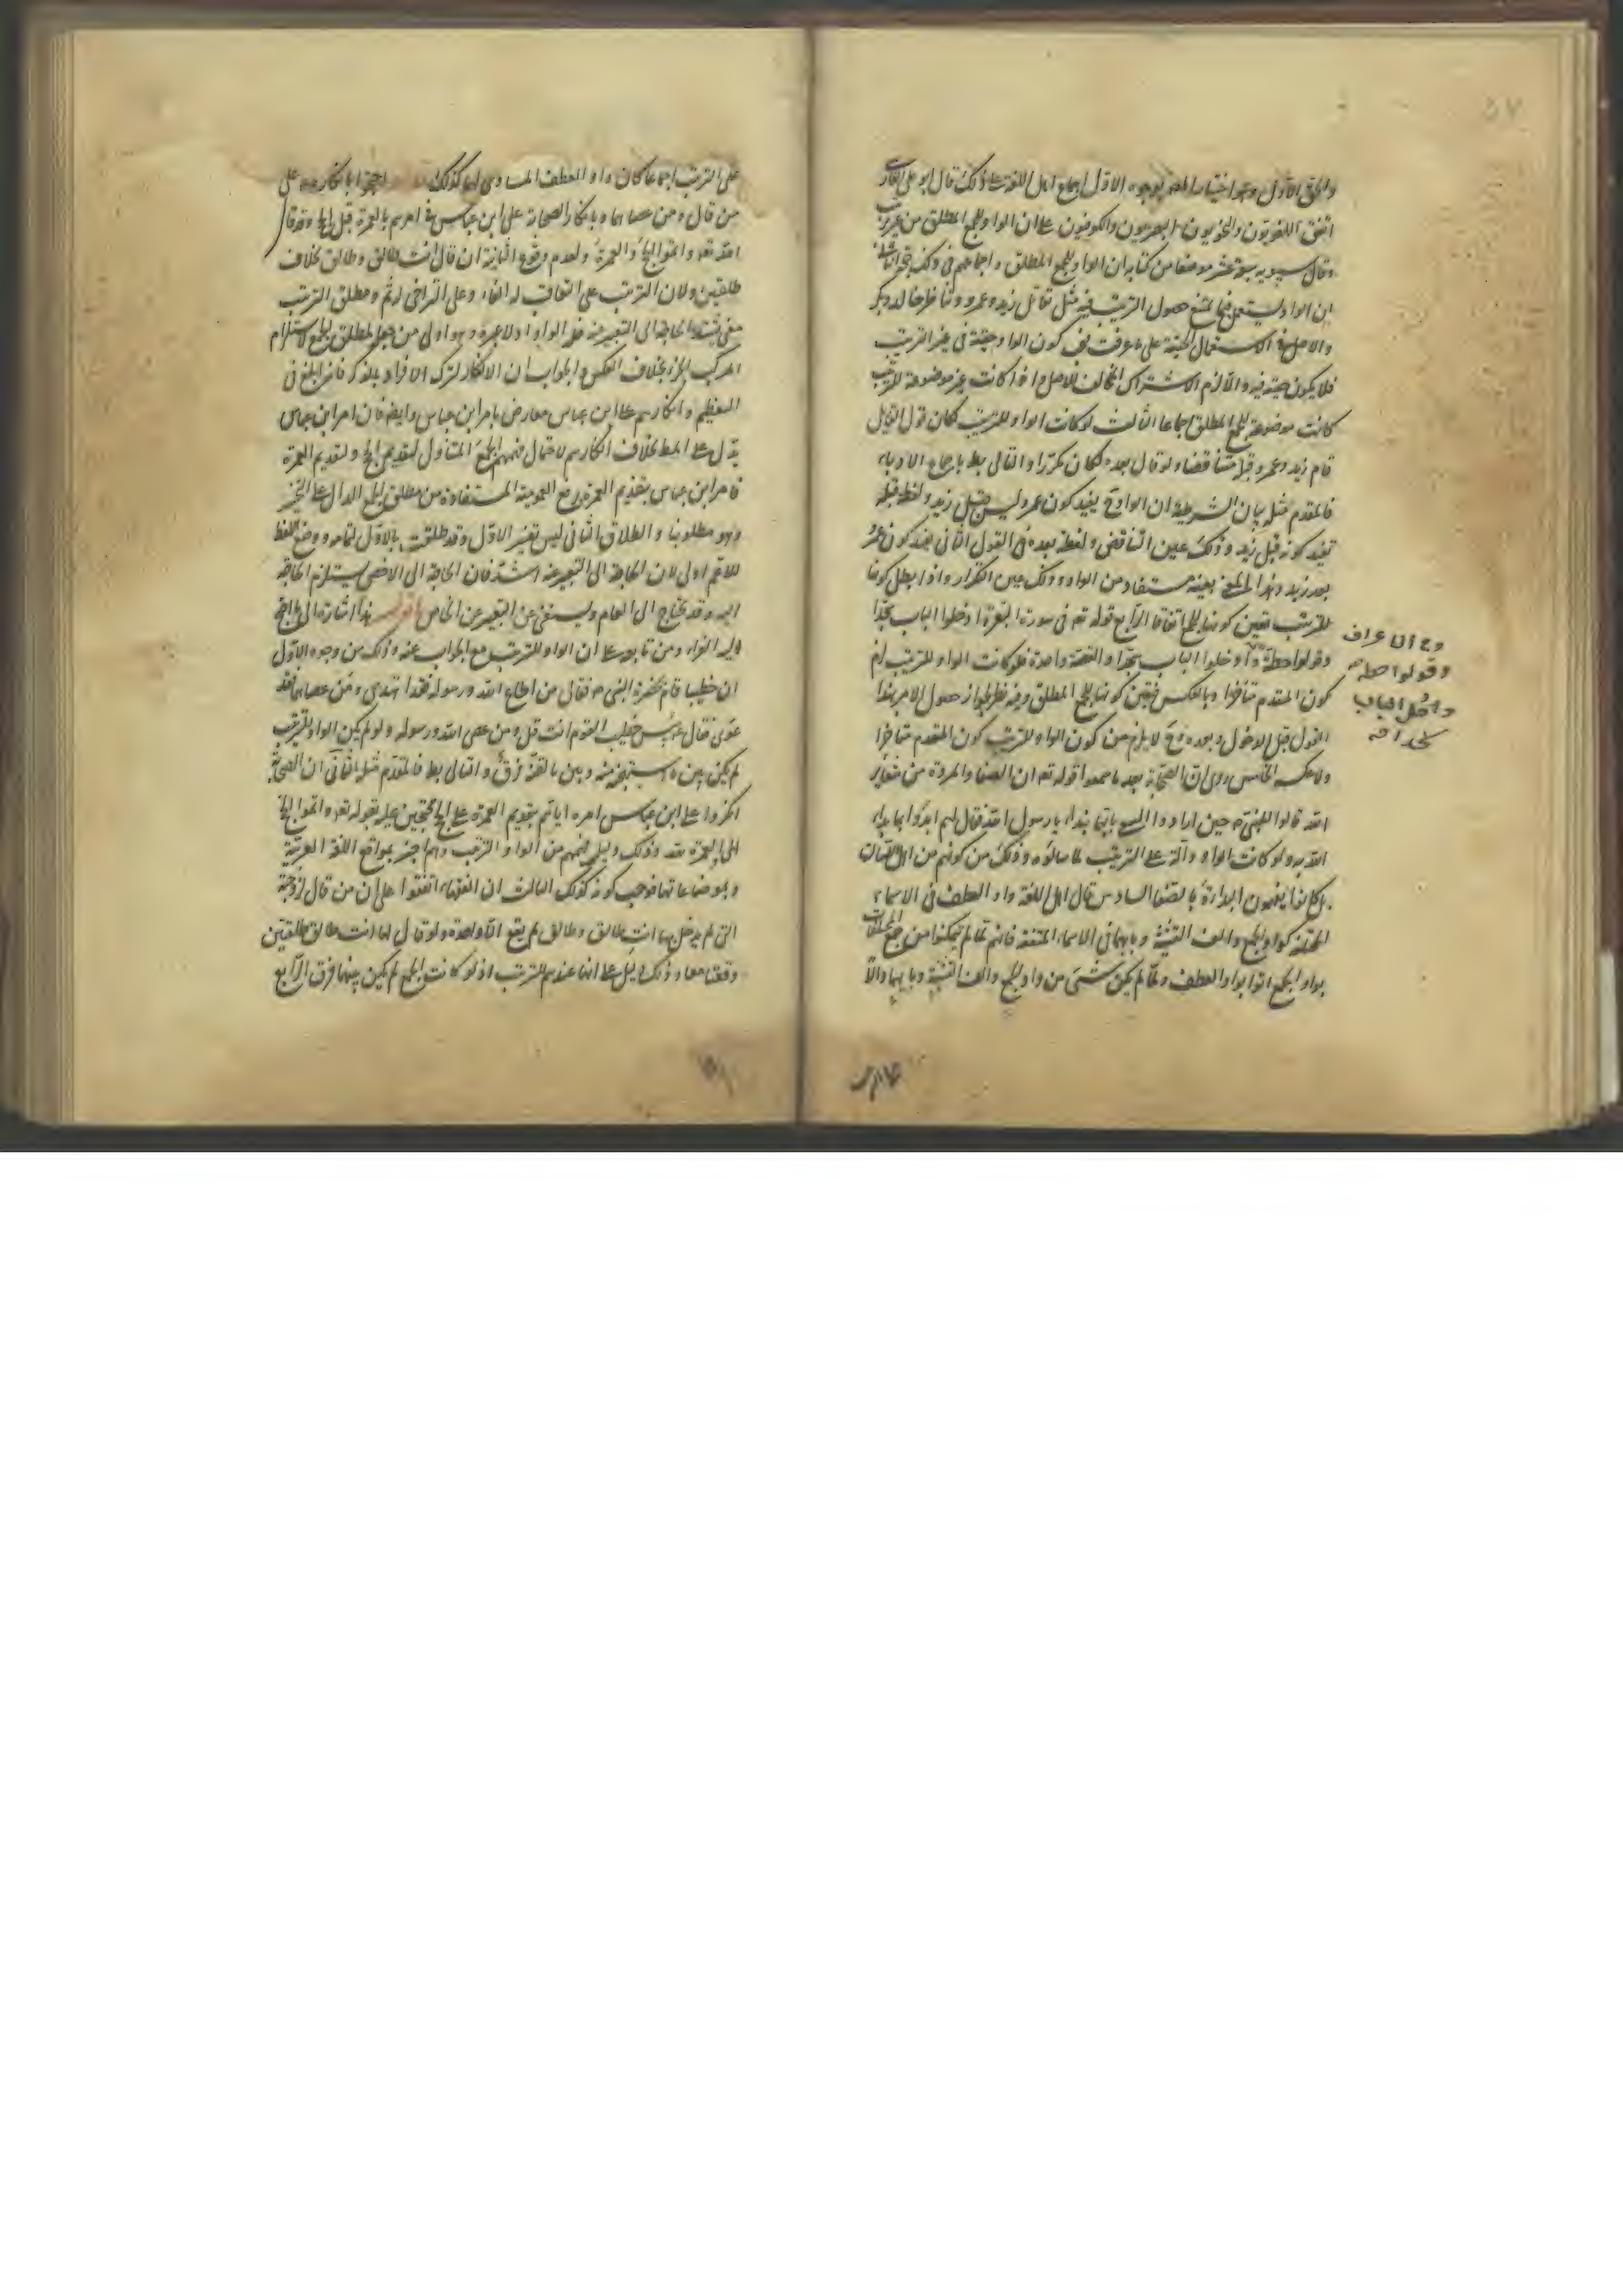 والحق الاول وهو اختيار المصنف لوجوه الاول اجماع اهل اللغة على ذلك قال ابو علي الفارسي
اتفق اللغويون والنحويون البصريون والكوفيون على ان الواو للجمع المطلق من غير ترتيب
وقال سيبويه سبعة عشر موضعا من كتابه ان الواو للجمع المطلق واجماعهم في ذلك حجة الثاني
ان الواو يستعمل فيما يمتنع حصول الترتيب فيه مثل تقاتل زيد وعمرو وتناظر خالد وبكر
والاصل في الاستعمال الحقيقة على ما عرفت فيكون الواو حقيقة في غير الترتيب
فلا يكون حقيقة فيه والا لزم الاشتراك المخالف للاصل واذا كانت غير موضوعة للترتيب
كانت موضوعة للجمع المطلق اجماعا الثالث لو كانت الواو للترتيب لكان قول القايل
قام زيد وعمرو قبله متناقضا ولو قال بعده لكان تكرارا والتالي بط باجماع الادباء
فالمقدم مثله بيان الشرطية ان الواو ح يفيد كون عمرو ليس قبل زيد ولفظ قبله
تفيد كونه قبل زيد وذلك عين التناقض ولفظة بعده في القول الثاني يفيد كون عمرو
بعد زيد وهذا المعنى بعينه مستفاد من الواو وذلك عين التكرار واذا بطل كونها
للترتيب تعين كونها للجمع اتفاقا الرابع قوله تعه في سورة البقرة ادخلوا الباب سجدا
وقولوا حطة وادخلوا الباب سجدا والقصة واحدة فلو كانت الواو للترتيب لزم
كون المتقدم متاخرا وبالعكس فيتعين كونها للجمع المطلق وفيه نظر لجواز حصول الامر بهذا
القول قبل الدخول وبعده وح لا يلزم من كون الواو للترتيب كون المتقدم متاخرا
ولا عكسه الخامس روي ان الصحابة بعد ما سمعوا قوله تعه ان الصفا والمروة من شعاير
الله قالوا للنبي م حين ارادوا السعي بايهما نبدا يا رسول الله فقال لهم ابدؤا بما بدا
الله به ولو كانت الواو دالة على الترتيب لما سالوه وذلك من كونهم من اهل اللسان
بل كانوا يفهمون البداءة بالصفا السادس قال اهل اللغة واو العطف في الاسماء
المختلفة كواو الجمع والف التثنية وبايهما في الاسماء المتفقة فانهم لما لم يتمكنوا من جمع المختلفات
بواو الجمع اتوا بواو العطف ولما لم يكن شيء من واو الجمع والف التثنية وبايهما دالا
وفي الاعراف
وقولوا حطة
وادخلوا الباب
سجدا فه
على الترتيب اجماعا كان واو العطف المساوي لها كذلك احتجوا بانكاره على
من قال ومن عصاهما وبانكار الصحابة على ابن عباس في امرهم بالعمرة قبل الحج وقد قال
الله تعه واتموا الحج والعمرة ولعدم وقوع الثانية ان قال انت طالق وطالق بخلاف
طلقتين ولان الترتيب على التعاقب له الفاء وعلى التراخي له ثم ومطلق الترتيب
معنى تشتد الحاجة الى التعبير عنه فله الواو اذ لا غيره وهو اولى من جعل لمطلق الجمع لاستلزام
المركب الجزء بخلاف العكس والجواب ان الانكار لترك الافراد بالذكر فانه ابلغ في
التعظيم وانكارهم على ابن عباس معارض بامر ابن عباس وايضا فان امر ابن عباس
يدل على المط بخلاف انكارهم لاحتمال فهمهم الجمع المتناول لتقديم الحج ولتقديم العمرة
فامر ابن عباس بتقديم العمرة رفع العمومية المستفادة من مطلق الجمع الدال على التخيير
وهو مطلوبنا والطلاق الثاني ليس تفسير الاول وقد طلقت بالاول لتمامه ووضع اللفظ
للاعم اولى لان الحاجة الى التعبير عنه اشد فان الحاجة الى الاخص يستلزم الحاجة
اليه وقد يحتاج الى العام ويستغنى عن التعبير عن الخاص اقول هذا اشارة الى ما احتج
اليه الفراء ومن تابعه على ان الواو للترتيب مع الجواب عنه وذلك من وجوه الاول
ان خطيبا قام بحضرة النبي م فقال من اطاع الله ورسوله فقد اهتدى ومن عصاهما فقد
غوى فقال ع بئس خطيب القوم انت قل ومن عصى الله ورسوله ولو لم يكن الواو للترتيب
لم يكن بين ما استهجنه منه وبين ما لقنه فرق والتالي بط فالمقدم مثله الثاني ان الصحابة
انكروا على ابن عباس امره اياهم بتقديم العمرة على الحج محتجين عليه بقوله تعه واتموا الحج
والعمرة لله وذلك دليل فهمهم من الواو الترتيب وهم اخبر بمواقع اللغة العربية
وبموضاعاتها فوجب كونه كذلك الثالث ان الفقهاء اتفقوا على ان من قال لزوجته
التي لم يدخل بها انت طالق وطالق لم يقع الا واحدة ولو قال لها انت طالق طلقتين
وقعتا معا وذلك دليل على انها عندهم للترتيب اذ لو كانت للجمع لم يكن بينهما فرق الرابع